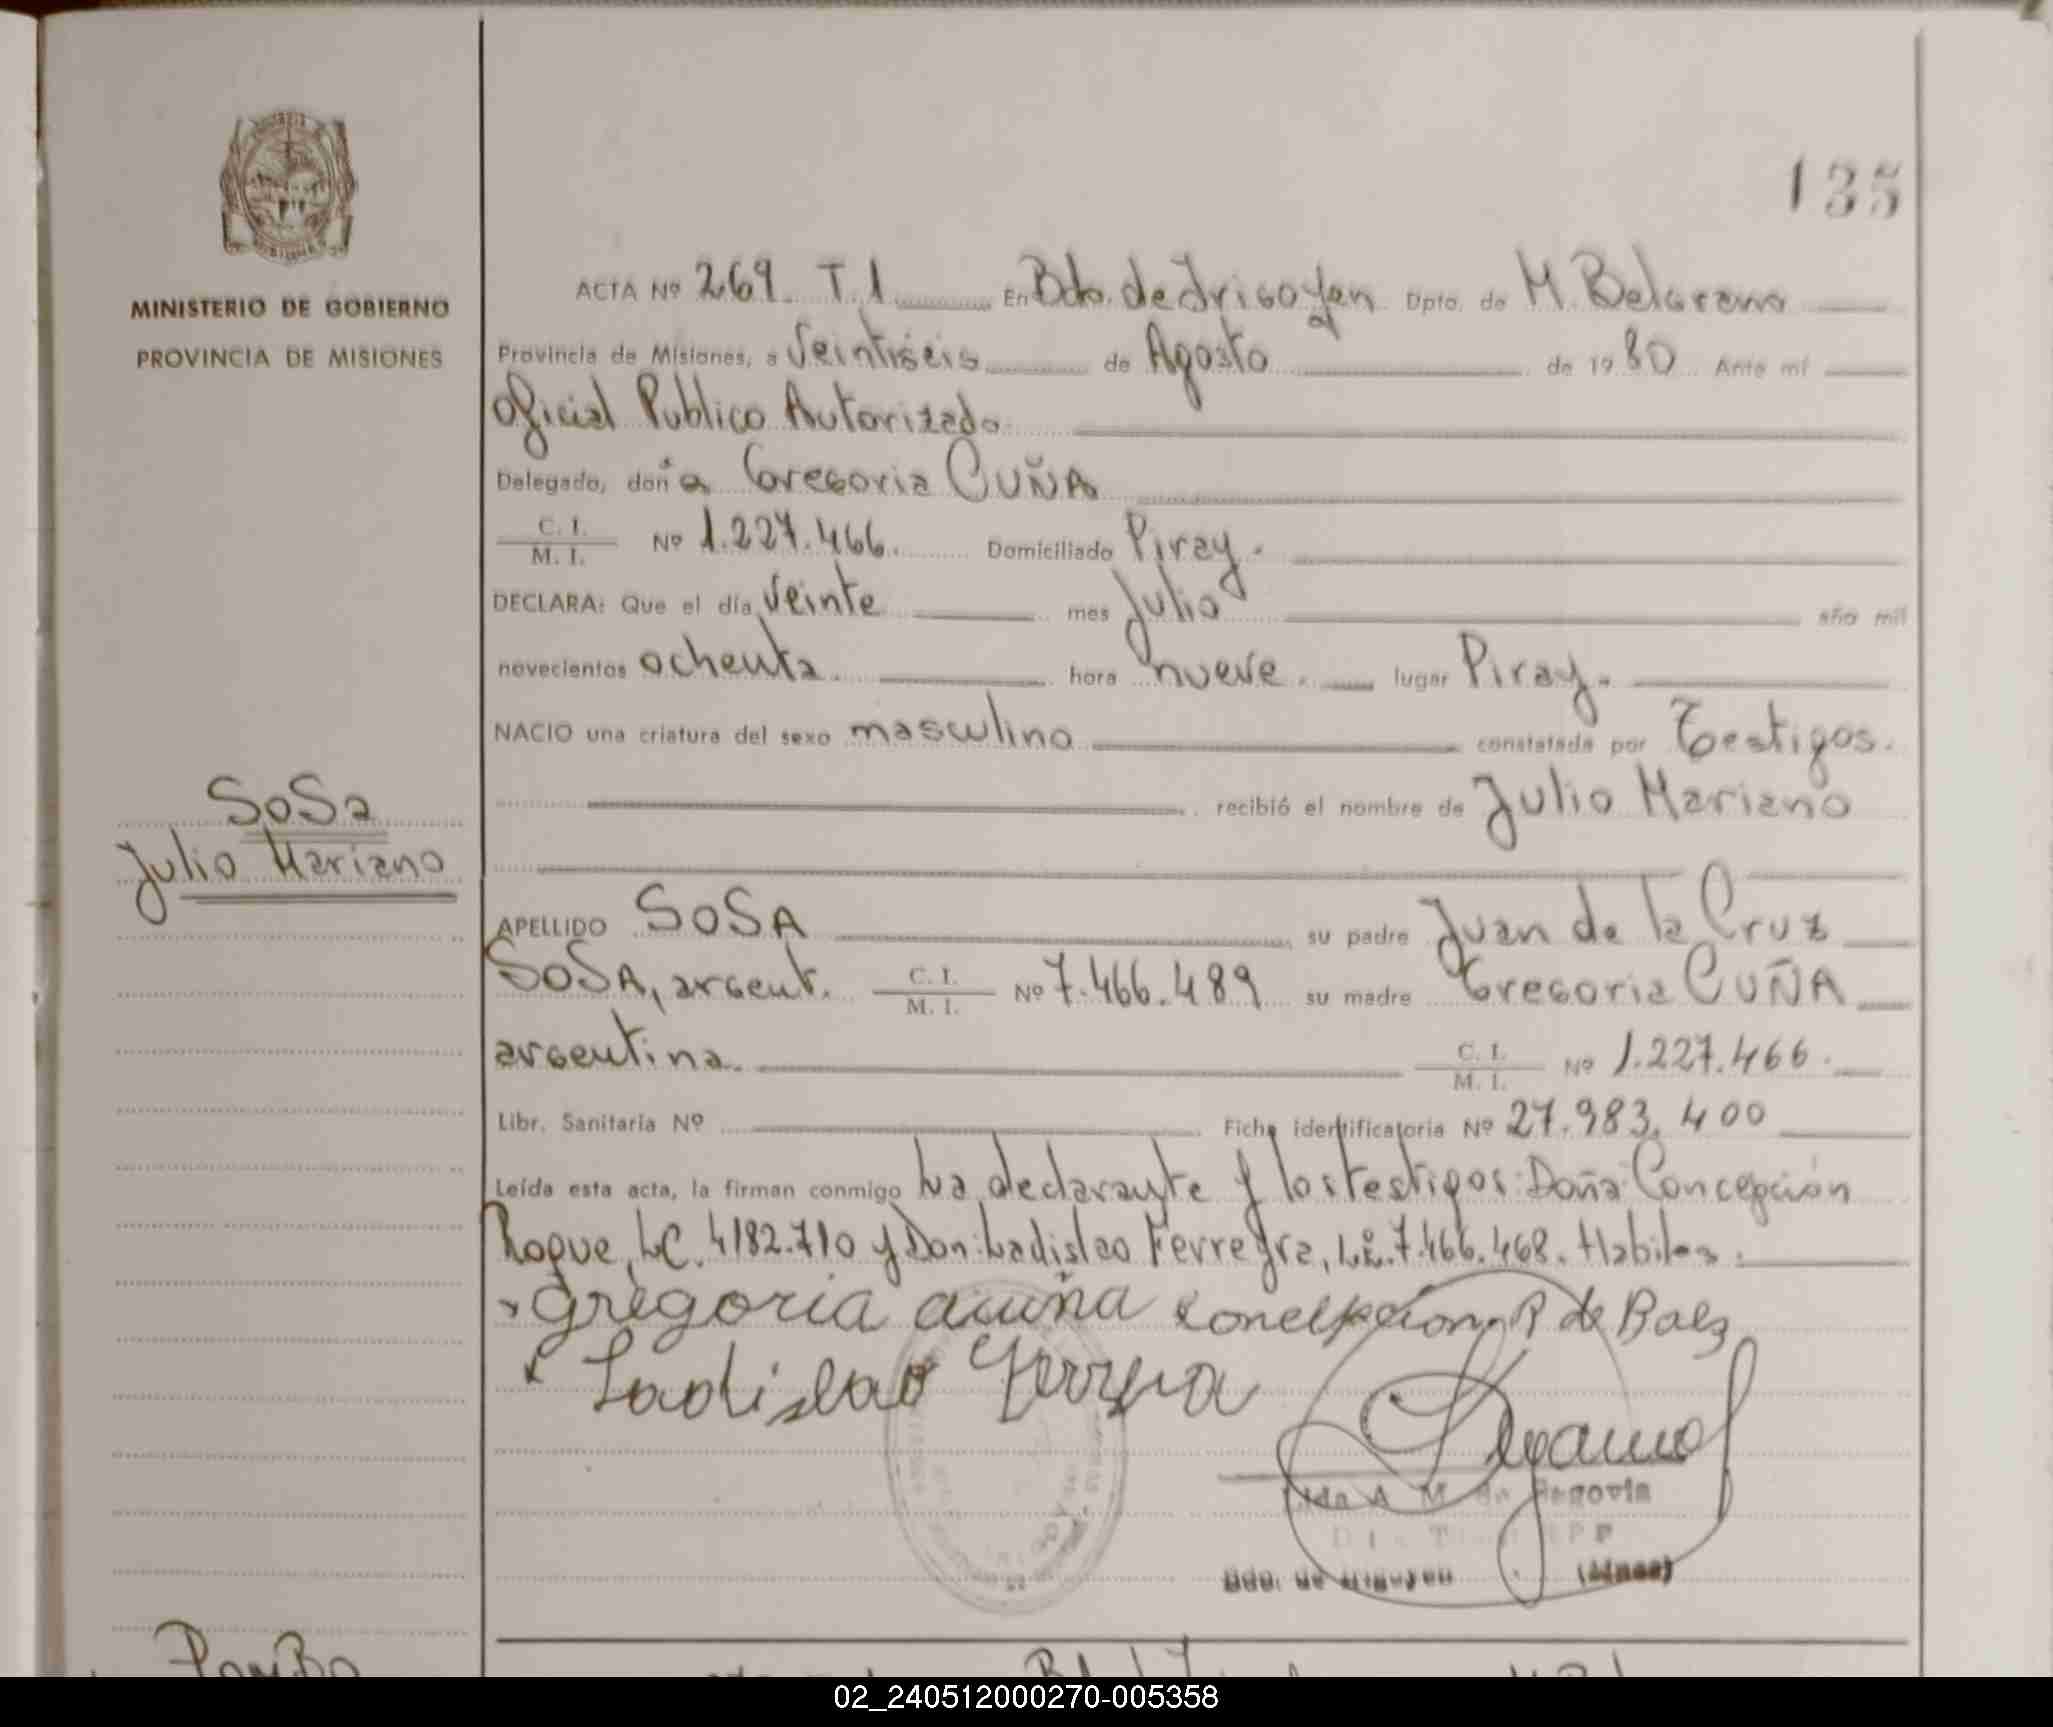 135
MINISTERIO DE GOBIERNO
PROVINCIA DE MISIONES
ACTA Nº 269 T.1 En Bdo. de Irigoyen Dpto. de M. Belgrano
Provincia de Misiones, a Veintiseis de Agosto de 1980 Ante mí
Oficial Publico Autorizado
Delegado, doña Gregoria CUÑA
C. I.
M. I. Nº 1.227.466. Domiciliado Piray.
DECLARA: Que el día Veinte mes Julio año mil
novecientos ochenta. hora nueve. lugar Piray.
NACIO una criatura del sexo masculino constatada por Testigos.
recibió el nombre de Julio Mariano
SoSa
Julio Mariano
APELLIDO SoSA su padre Juan de la Cruz
SoSA, argent. C. I.
M. I. Nº 7.466.489 su madre Gregoria CUÑA
argentina. C. I.
M. I. Nº 1.227.466.
Libr. Sanitaria Nº Ficha identificatoria Nº 27.983.400
Leída esta acta, la firman conmigo La declarante y los testigos: Doña Concepción
Roque, LC. 4182.710 y Don Ladislao Ferreyra, L.E. 7.466.468. Habiles.
Gregoria acuña Concepcion R de Baez
Ladislao Ferreyra
A. M. de Segovia
Bdo. de Irigoyen (Mnes)
02_240512000270-005358